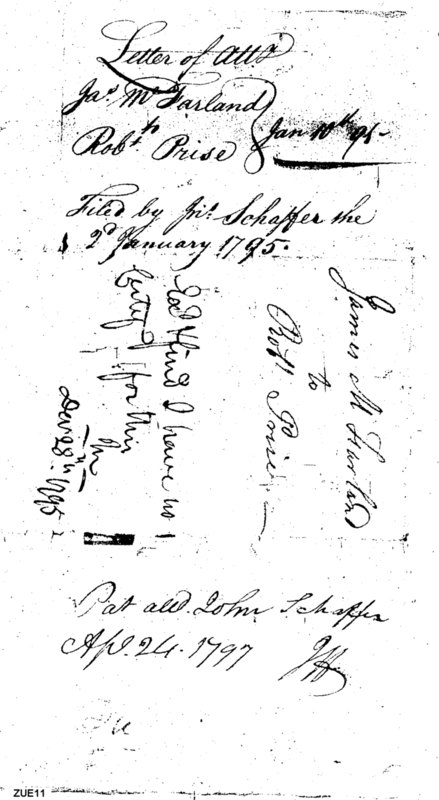 Letter of Atty
Jas McFarland
to
Robt Prise
Jan 10th 95
Filed by Jno. Schaffer the
2d January 1795.
James McFarland
to
Robt Prise
find I have no
for this
Pat all. John Schaffer
Apl. 24. 1797 JH
ZUE11